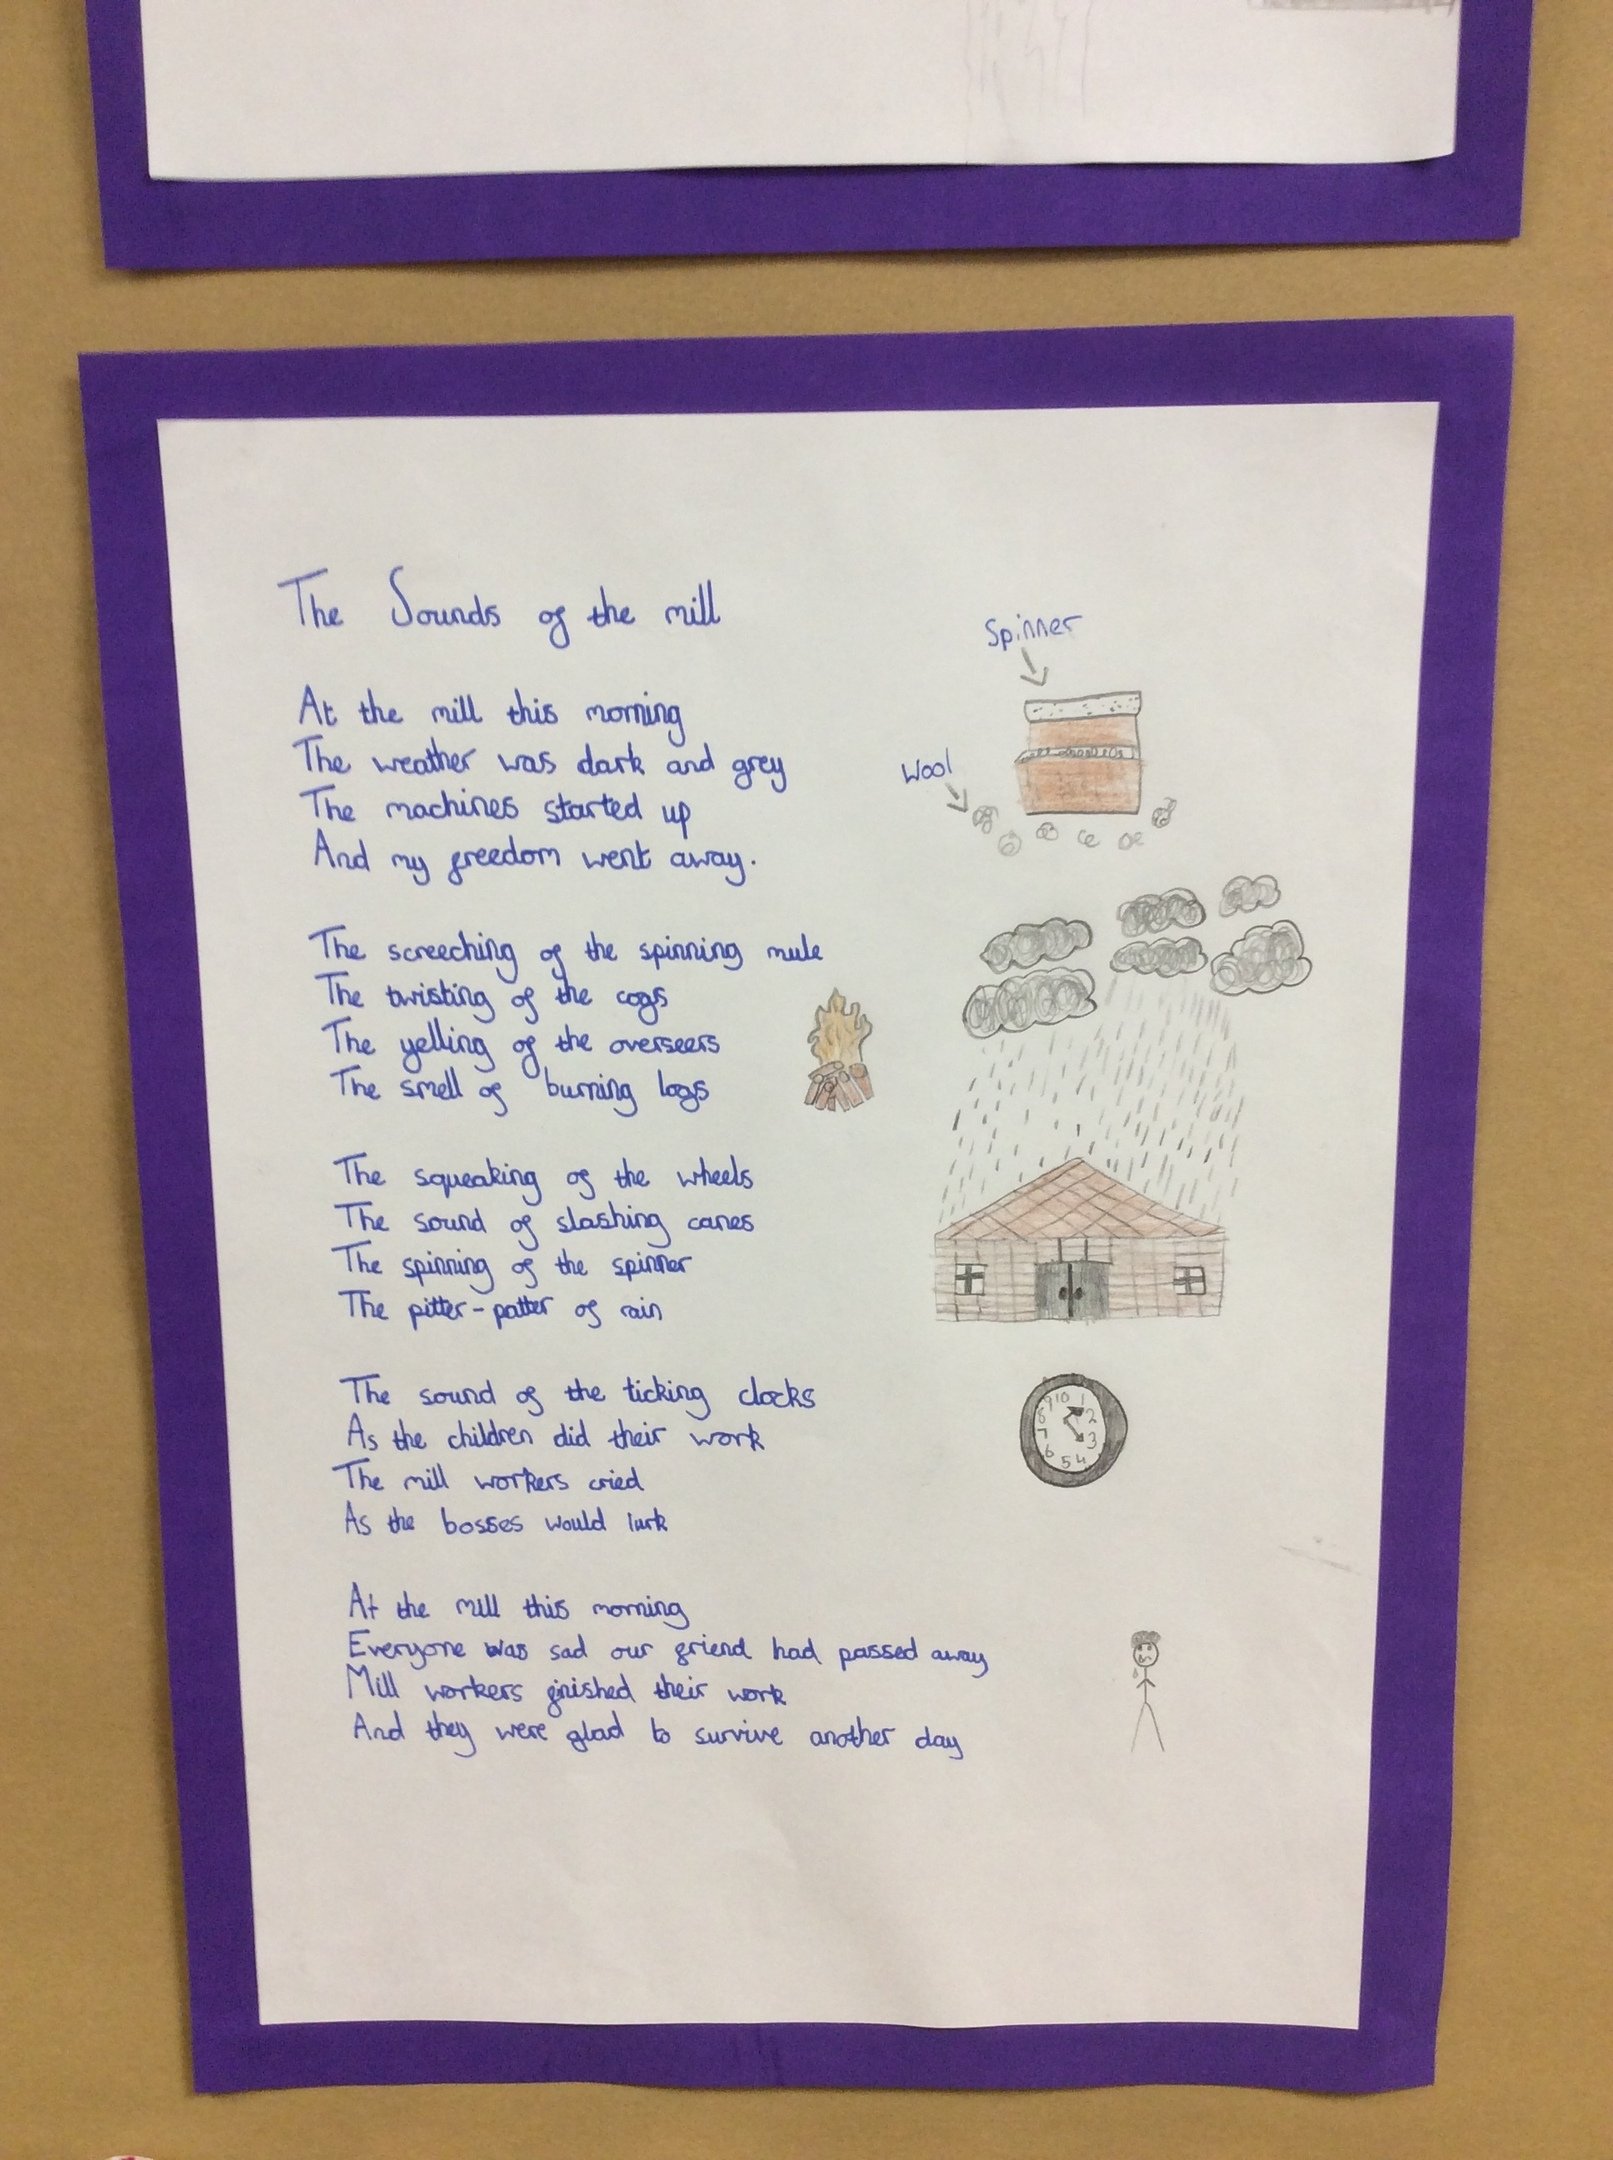 The Sounds of the mill
Spinner
Wool
At the mill this morning
The weather was dark and grey
The machines started up
And my freedom went away.
The screeching of the spinning mule
The twisting of the cogs
The yelling of the overseers
The smell of burning logs
The squeaking of the wheels
The sound of slashing canes
The spinning of the spinner
The pitter-patter of rain
The sound of the ticking clocks
As the children did their work
The mill workers cried
As the bosses would lurk
At the mill this morning
Everyone was sad our friend had passed away
Mill workers finished their work
And they were glad to survive another day